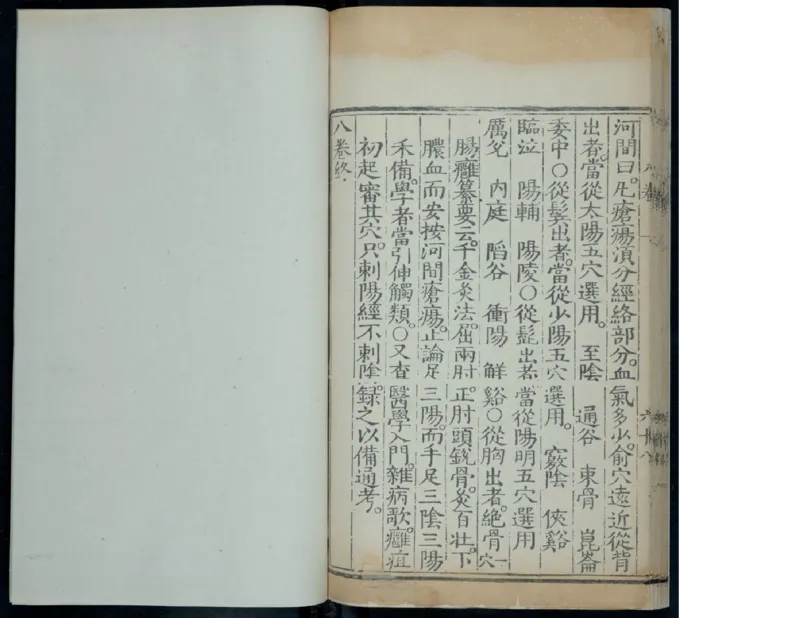 河間曰。凡瘡瘍須分經絡部分。血氣多少。俞穴遠近從背
出者。當從太陽五穴選用。至陰 通谷 束骨 崑崙
委中○從鬂出者。當從少陽五穴選用。竅陰 俠谿
臨泣 陽輔 陽陵○從髭出者當從陽明五穴選用
厲兌 內庭 陷谷 衝陽 解谿○從胸出者。絕骨一穴
腸癰纂要云。千金灸法。屈兩肘正肘頭銳骨。灸百壯。下
膿血而安按河間瘡瘍。止論足三陽。而手足三陰三陽
禾備。學者當引伸觸類。○又查醫學入門。雜病歌。癰疽
初起審其穴。只刺陽經不刺陰。錄之以備通考。
八卷終